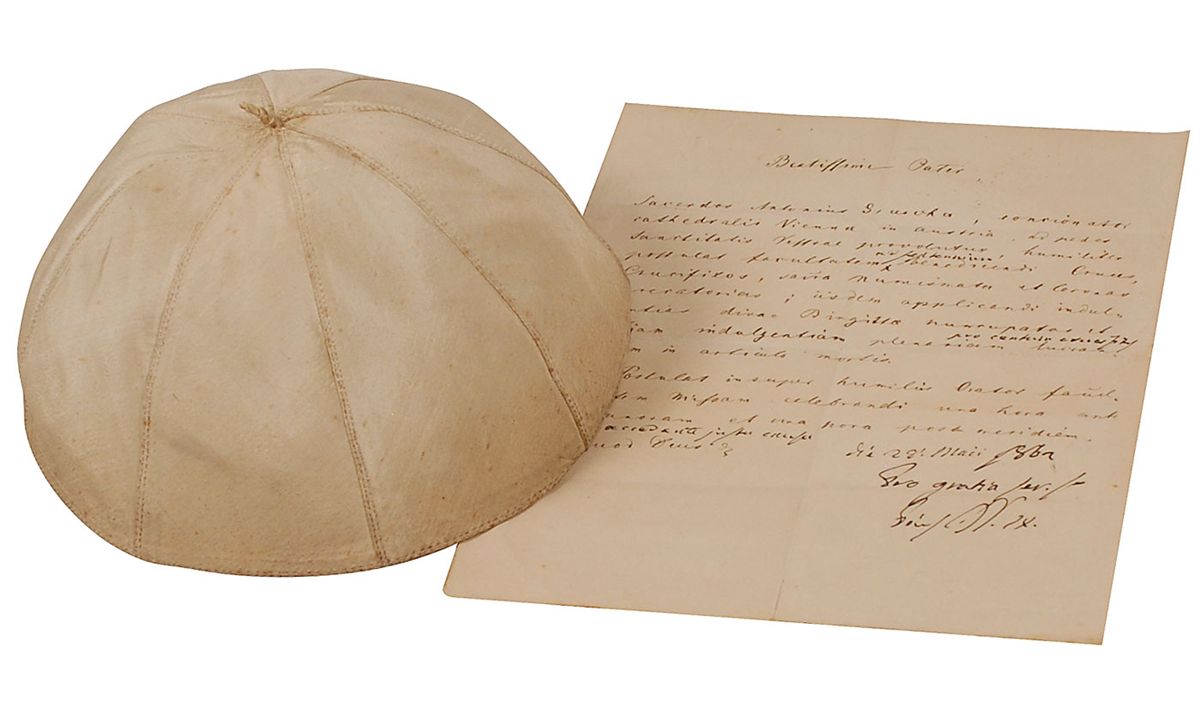 Beatissime Pater,
Sacerdos Antonius Gruscha, concionator
cathedralis Viennae in Austria, ad pedes
Sanctitatis Vestrae provolutus, humiliter
ad septennium,
postulat facultatem benedicendi Cruces,
Crucifixos, sacra numismata et Coronas
precatorias; iisdem applicandi indul-
tias divae Birgittae nuncupatas et
pro centum
iam indulgentiam plenariam
m in articulo mortis.
Postulat insuper humilis Orator facul-
tem Missam celebrandi una hora ante
auroram et una hora post meridiem,
accedente justa causa
uod Deus
die 22. Maii 1862
Pro gratia
Pius P. P. IX.